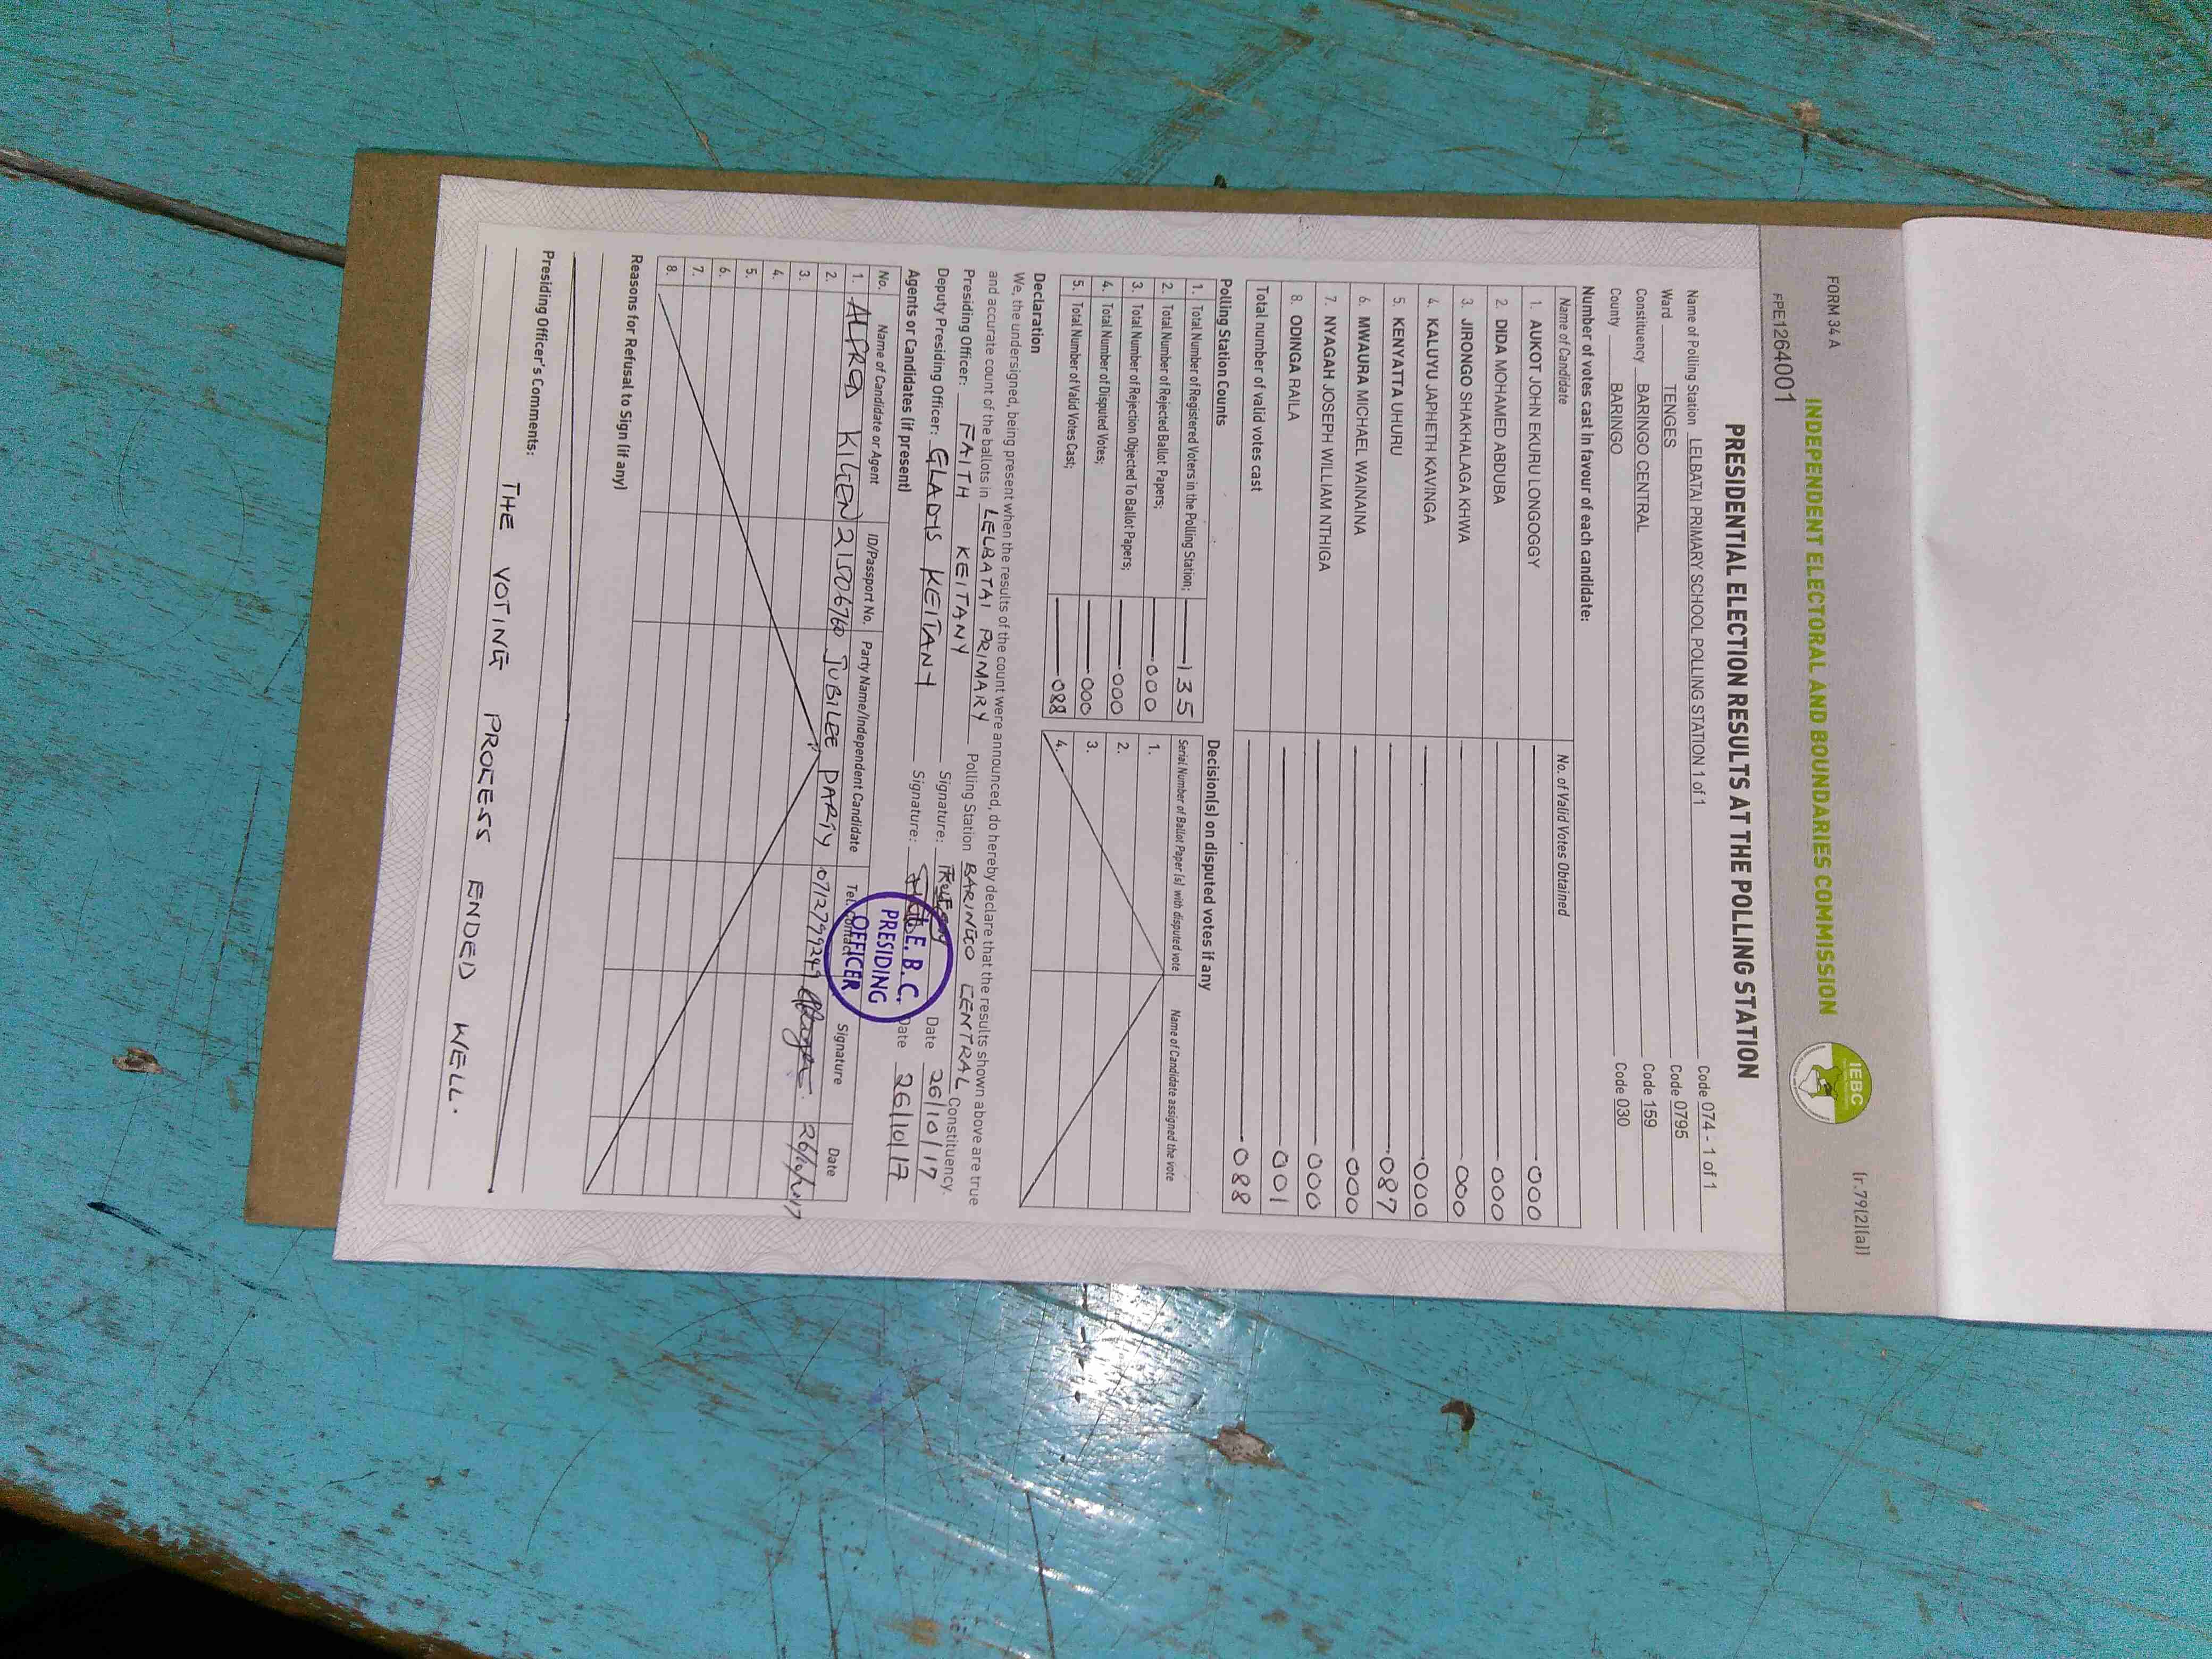 FORM 34 A
[r.79(2)(a)]
INDEPENDENT ELECTORAL AND BOUNDARIES COMMISSION
IEBC
PPE1264001
PRESIDENTIAL ELECTION RESULTS AT THE POLLING STATION
Name of Polling Station LELBATAI PRIMARY SCHOOL POLLING STATION 1 of 1 Code 074 - 1 of 1
Ward TENGES Code 0795
Constituency BARINGO CENTRAL Code 159
County BARINGO Code 030
Number of votes cast in favour of each candidate:
Name of Candidate No. of Valid Votes Obtained
1. AUKOT JOHN EKURU LONGOGGY 000
2. DIDA MOHAMED ABDUBA 000
3. JIRONGO SHAKHALAGA KHWA 000
4. KALUYU JAPHETH KAVINGA 000
5. KENYATTA UHURU 087
6. MWAURA MICHAEL WAINAINA 000
7. NYAGAH JOSEPH WILLIAM NTHIGA 000
8. ODINGA RAILA 001
Total number of valid votes cast 088
Polling Station Counts
1. Total Number of Registered Voters in the Polling Station; 135
2. Total Number of Rejected Ballot Papers; 000
3. Total Number of Rejection Objected To Ballot Papers; 000
4. Total Number of Disputed Votes; 000
5. Total Number of Valid Votes Cast; 088
Decision(s) on disputed votes if any
Serial Number of Ballot Paper (s) with disputed vote Name of Candidate assigned the vote
1.
2.
3.
4.
Declaration
We, the undersigned, being present when the results of the count were announced, do hereby declare that the results shown above are true
and accurate count of the ballots in LELBATAI PRIMARY Polling Station BARINGO CENTRAL Constituency.
Presiding Officer: FAITH KEITANY Signature: Date 26/10/17
Deputy Presiding Officer: GLADYS KEITANY Signature: Date 26/10/17
I.E.B.C.
PRESIDING
OFFICER
Agents or Candidates (if present)
No. Name of Candidate or Agent ID/Passport No. Party Name/Independent Candidate Tel. Contact Signature Date
1. ALFRED KIGEN 21506760 JUBILEE PARTY 26/10/2017
2.
3.
4.
5.
6.
7.
8.
Reasons for Refusal to Sign (if any)
Presiding Officer's Comments:
THE VOTING PROCESS ENDED WELL.